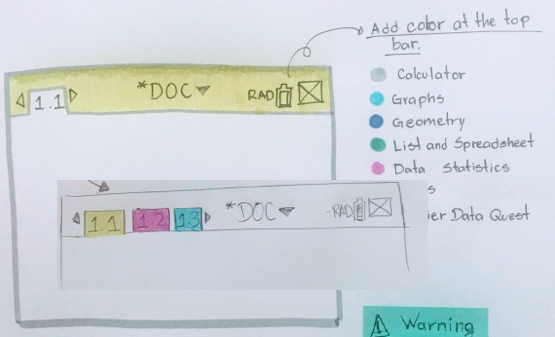 Add color at the top
bar.
1.1 *DOC RAD
Calculator
Graphs
Geometry
List and Spreadsheet
Data Statistics
s
ier Data Quest
1.1 1.2 1.3 *DOC RAD
Warning